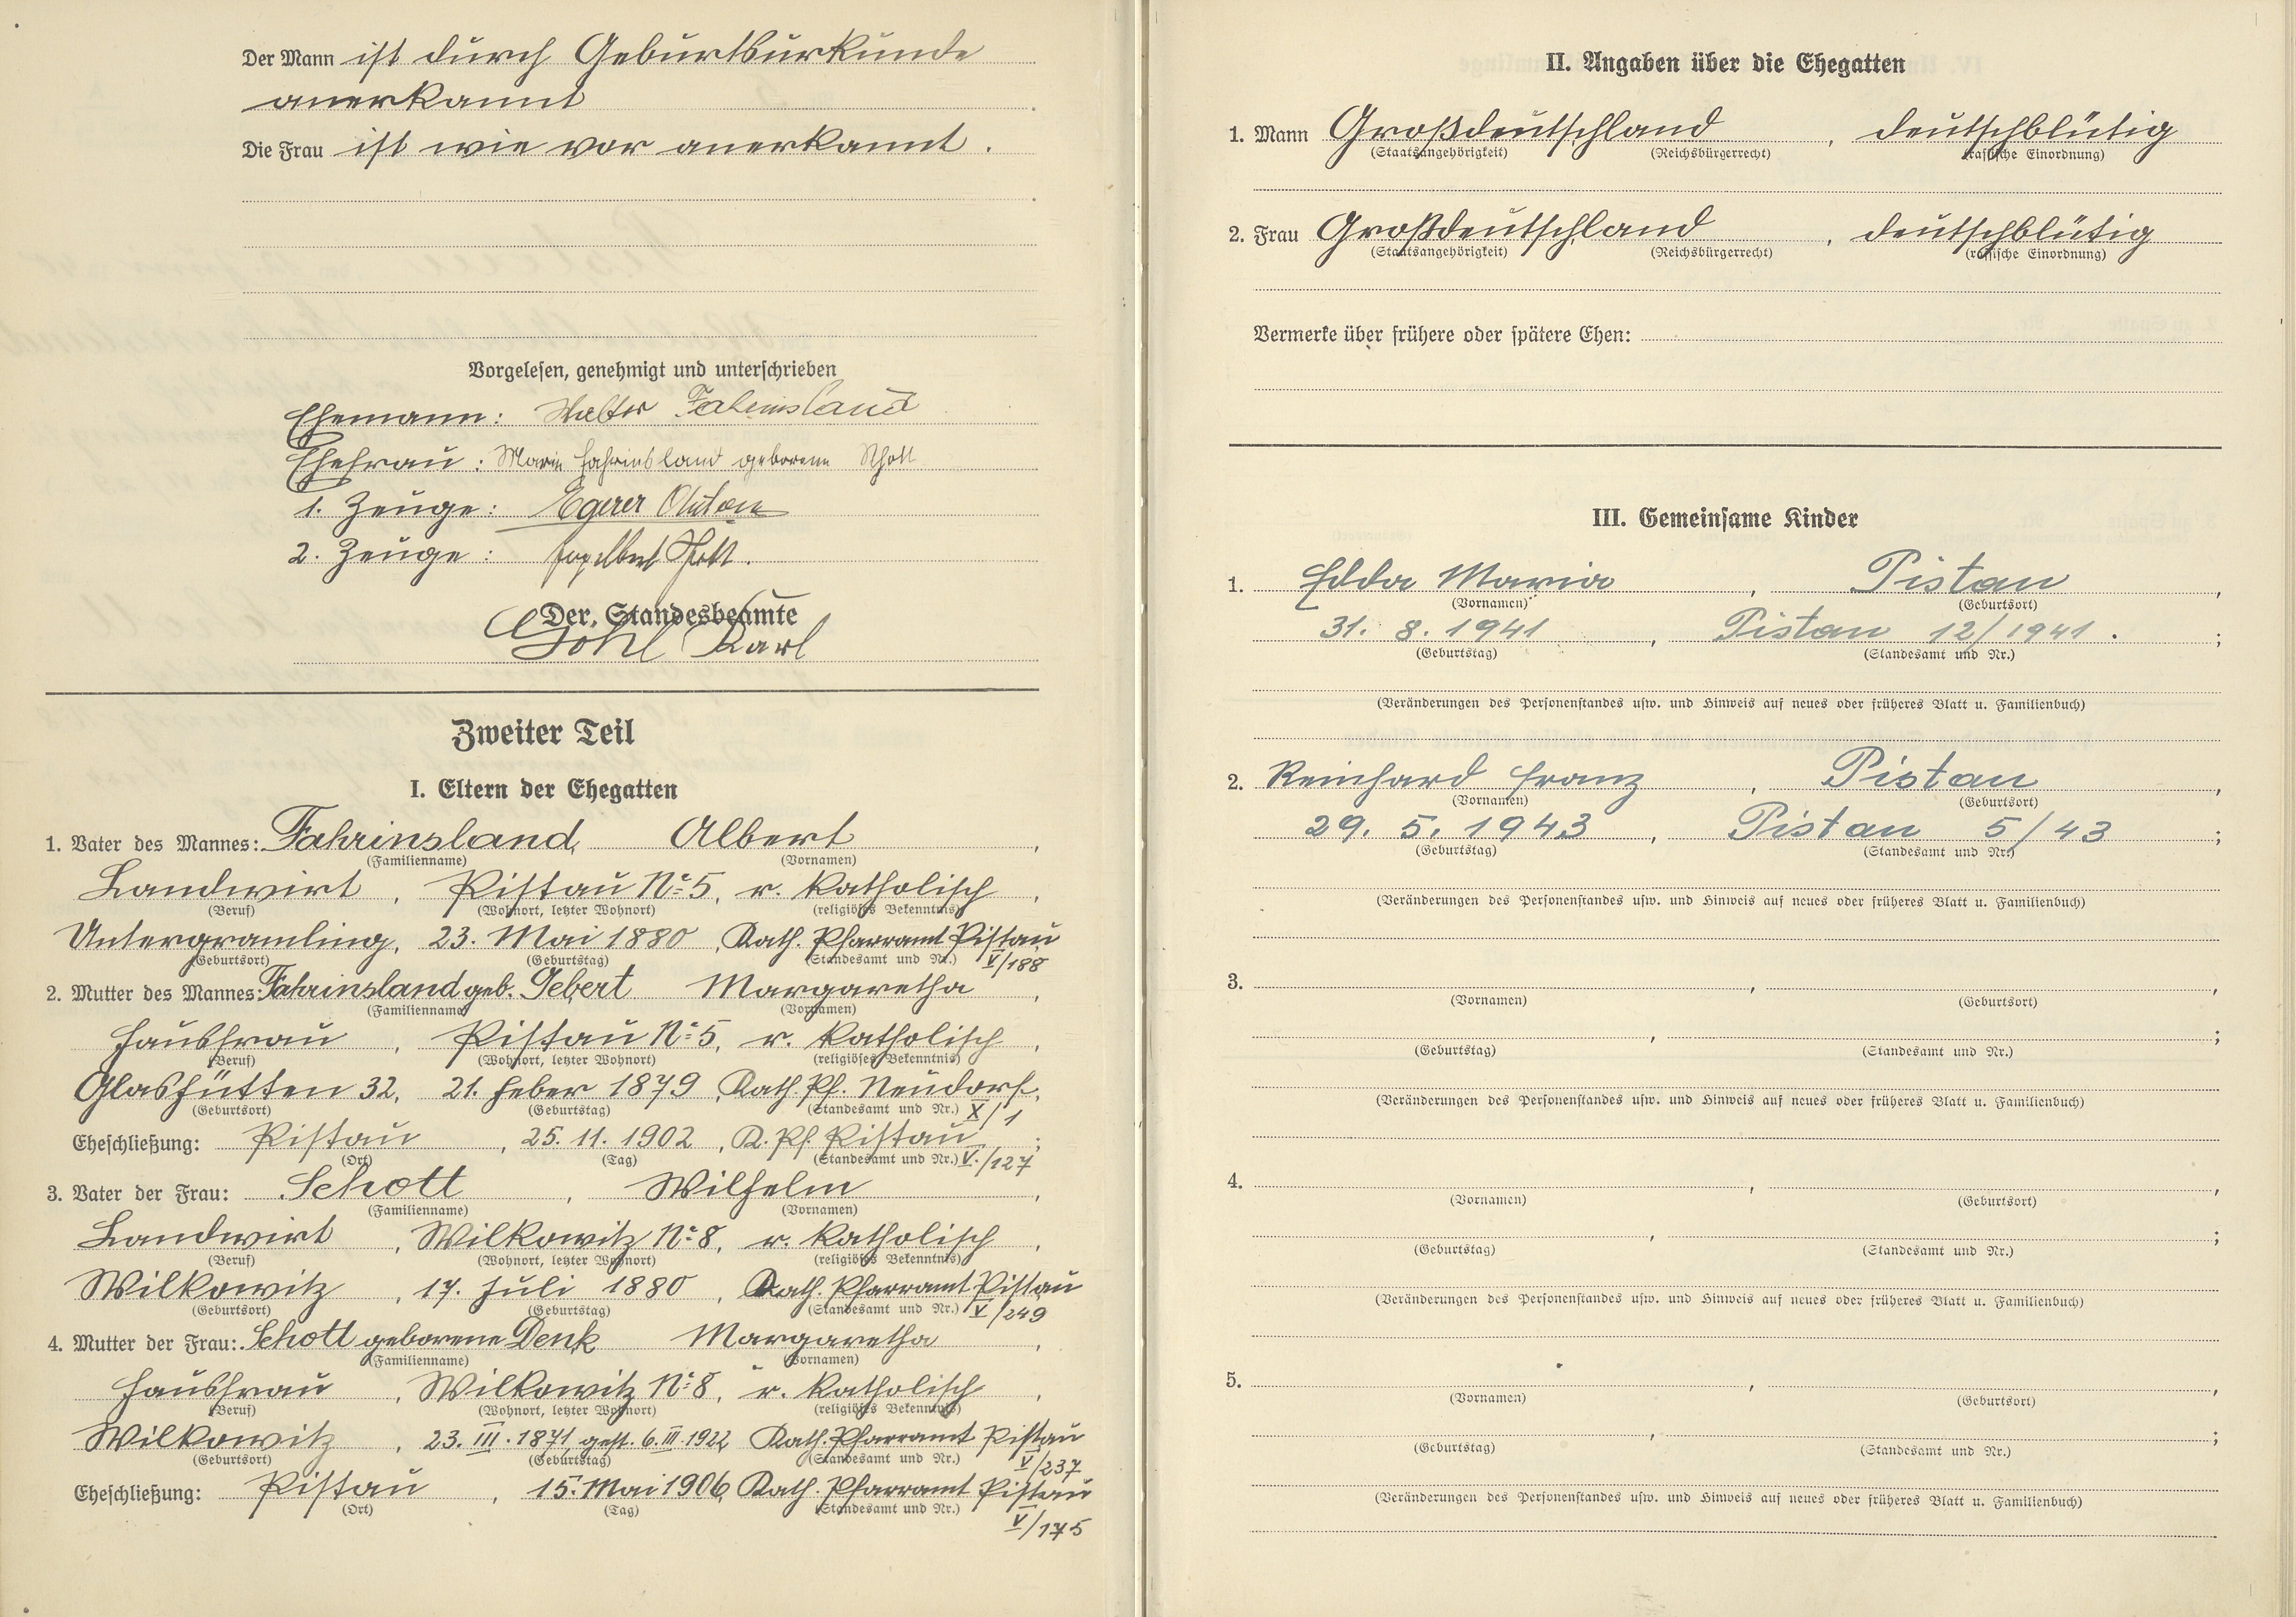 Der Mann ist durch Geburtsurkunde
anerkannt
Die Frau ist wie vor anerkannt.
Vorgelesen, genehmigt und unterschrieben
Ehemann: Walter Fahrinsland
Ehefrau: Marie Fahrinsland geborene Schott
1. Zeuge: Egerer Anton
2. Zeuge:
Der Standesbeamte
Gohl Karl
Zweiter Teil
I. Eltern der Ehegatten
1. Vater des Mannes: Fahrinsland, Albert,
(Familienname) (Vornamen)
Landwirt, Pistau No 5, r. katholisch,
(Beruf) (Wohnort, letzter Wohnort) (religiöses Bekenntnis)
Untergramling, 23. Mai 1880, Kath. Pfarramt Pistau
(Geburtsort) (Geburtstag) (Standesamt und Nr.) V/188
2. Mutter des Mannes: Fahrinsland geb. Gebert Margaretha,
(Familienname) (Vornamen)
Hausfrau, Pistau No 5, r. katholisch,
(Beruf) (Wohnort, letzter Wohnort) (religiöses Bekenntnis)
Glashütten 32, 21. Feber 1879, Kath. Pf. Neudorf,
(Geburtsort) (Geburtstag) (Standesamt und Nr.) X/1
Eheschließung: Pistau, 25. 11. 1902, K. Pf. Pistau;
(Ort) (Tag) (Standesamt und Nr.) V./127
3. Vater der Frau: Schott, Wilhelm,
(Familienname) (Vornamen)
Landwirt, Wilkowitz No 8, r. katholisch,
(Beruf) (Wohnort, letzter Wohnort) (religiöses Bekenntnis)
Wilkowitz, 17. Juli 1880, Kath. Pfarramt Pistau
(Geburtsort) (Geburtstag) (Standesamt und Nr.) V/249
4. Mutter der Frau: Schott geborene Denk Margaretha,
(Familienname) (Vornamen)
Hausfrau, Wilkowitz No 8, r. katholisch,
(Beruf) (Wohnort, letzter Wohnort) (religiöses Bekenntnis)
Wilkowitz, 23. III. 1871, gest. 6. III. 1922 Kath. Pfarramt Pistau
(Geburtsort) (Geburtstag) (Standesamt und Nr.) V/237
Eheschließung: Pistau, 15. Mai 1906, Kath. Pfarramt Pistau
(Ort) (Tag) (Standesamt und Nr.)
V/175
II. Angaben über die Ehegatten
1. Mann Großdeutschland, deutschblütig
(Staatsangehörigkeit) (Reichsbürgerrecht) (rassische Einordnung)
2. Frau Großdeutschland, deutschblütig
(Staatsangehörigkeit) (Reichsbürgerrecht) (rassische Einordnung)
Vermerke über frühere oder spätere Ehen:
III. Gemeinsame Kinder
1. Edda Maria, Pistau,
(Vornamen) (Geburtsort)
31. 8. 1941, Pistau 12/1941.;
(Geburtstag) (Standesamt und Nr.)
(Veränderungen des Personenstandes usw. und Hinweis auf neues oder früheres Blatt u. Familienbuch)
2. Reinhard Franz, Pistau,
(Vornamen) (Geburtsort)
29. 5. 1943, Pistau 5/43;
(Geburtstag) (Standesamt und Nr.)
(Veränderungen des Personenstandes usw. und Hinweis auf neues oder früheres Blatt u. Familienbuch)
3. , ,
(Vornamen) (Geburtsort)
, ;
(Geburtstag) (Standesamt und Nr.)
(Veränderungen des Personenstandes usw. und Hinweis auf neues oder früheres Blatt u. Familienbuch)
4. , ,
(Vornamen) (Geburtsort)
, ;
(Geburtstag) (Standesamt und Nr.)
(Veränderungen des Personenstandes usw. und Hinweis auf neues oder früheres Blatt u. Familienbuch)
5. , ,
(Vornamen) (Geburtsort)
, ;
(Geburtstag) (Standesamt und Nr.)
(Veränderungen des Personenstandes usw. und Hinweis auf neues oder früheres Blatt u. Familienbuch)